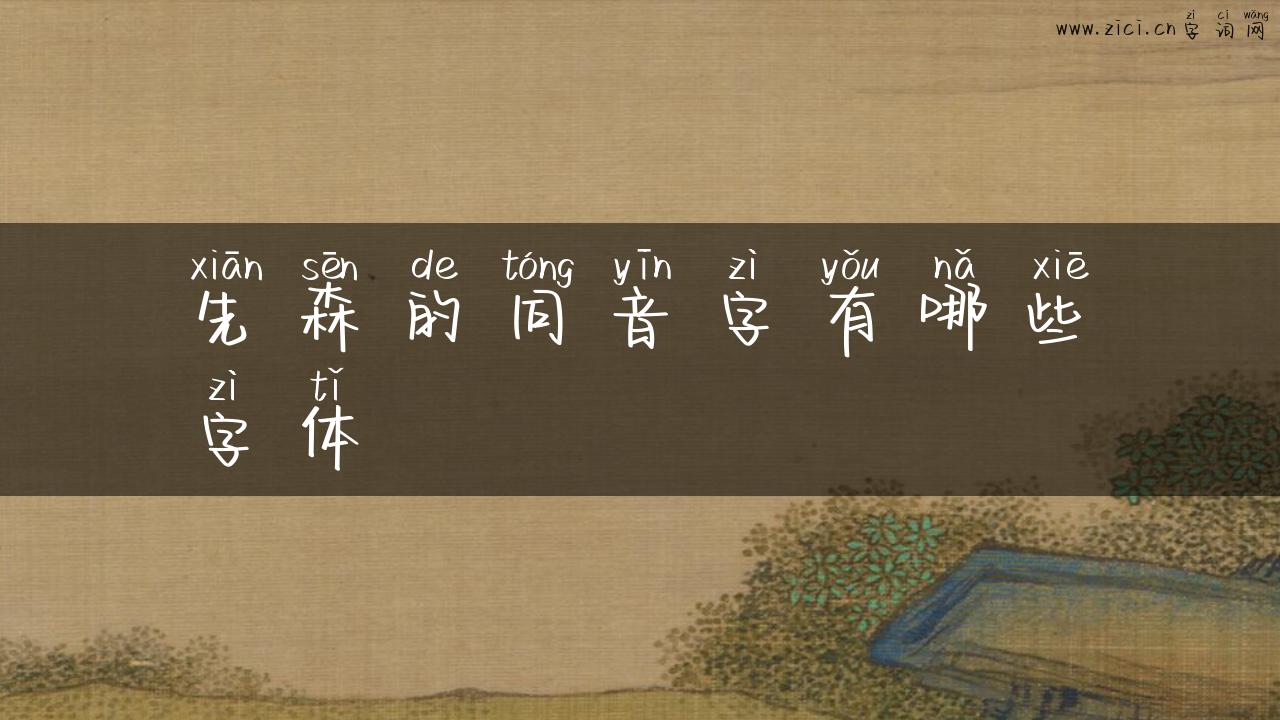 zì cí wǎng
www.zici.cn 字 词 网
xiān sēn de tóng yīn zì yǒu nǎ xiē
先 森 的 同 音 字 有 哪 些
zì tǐ
字 体